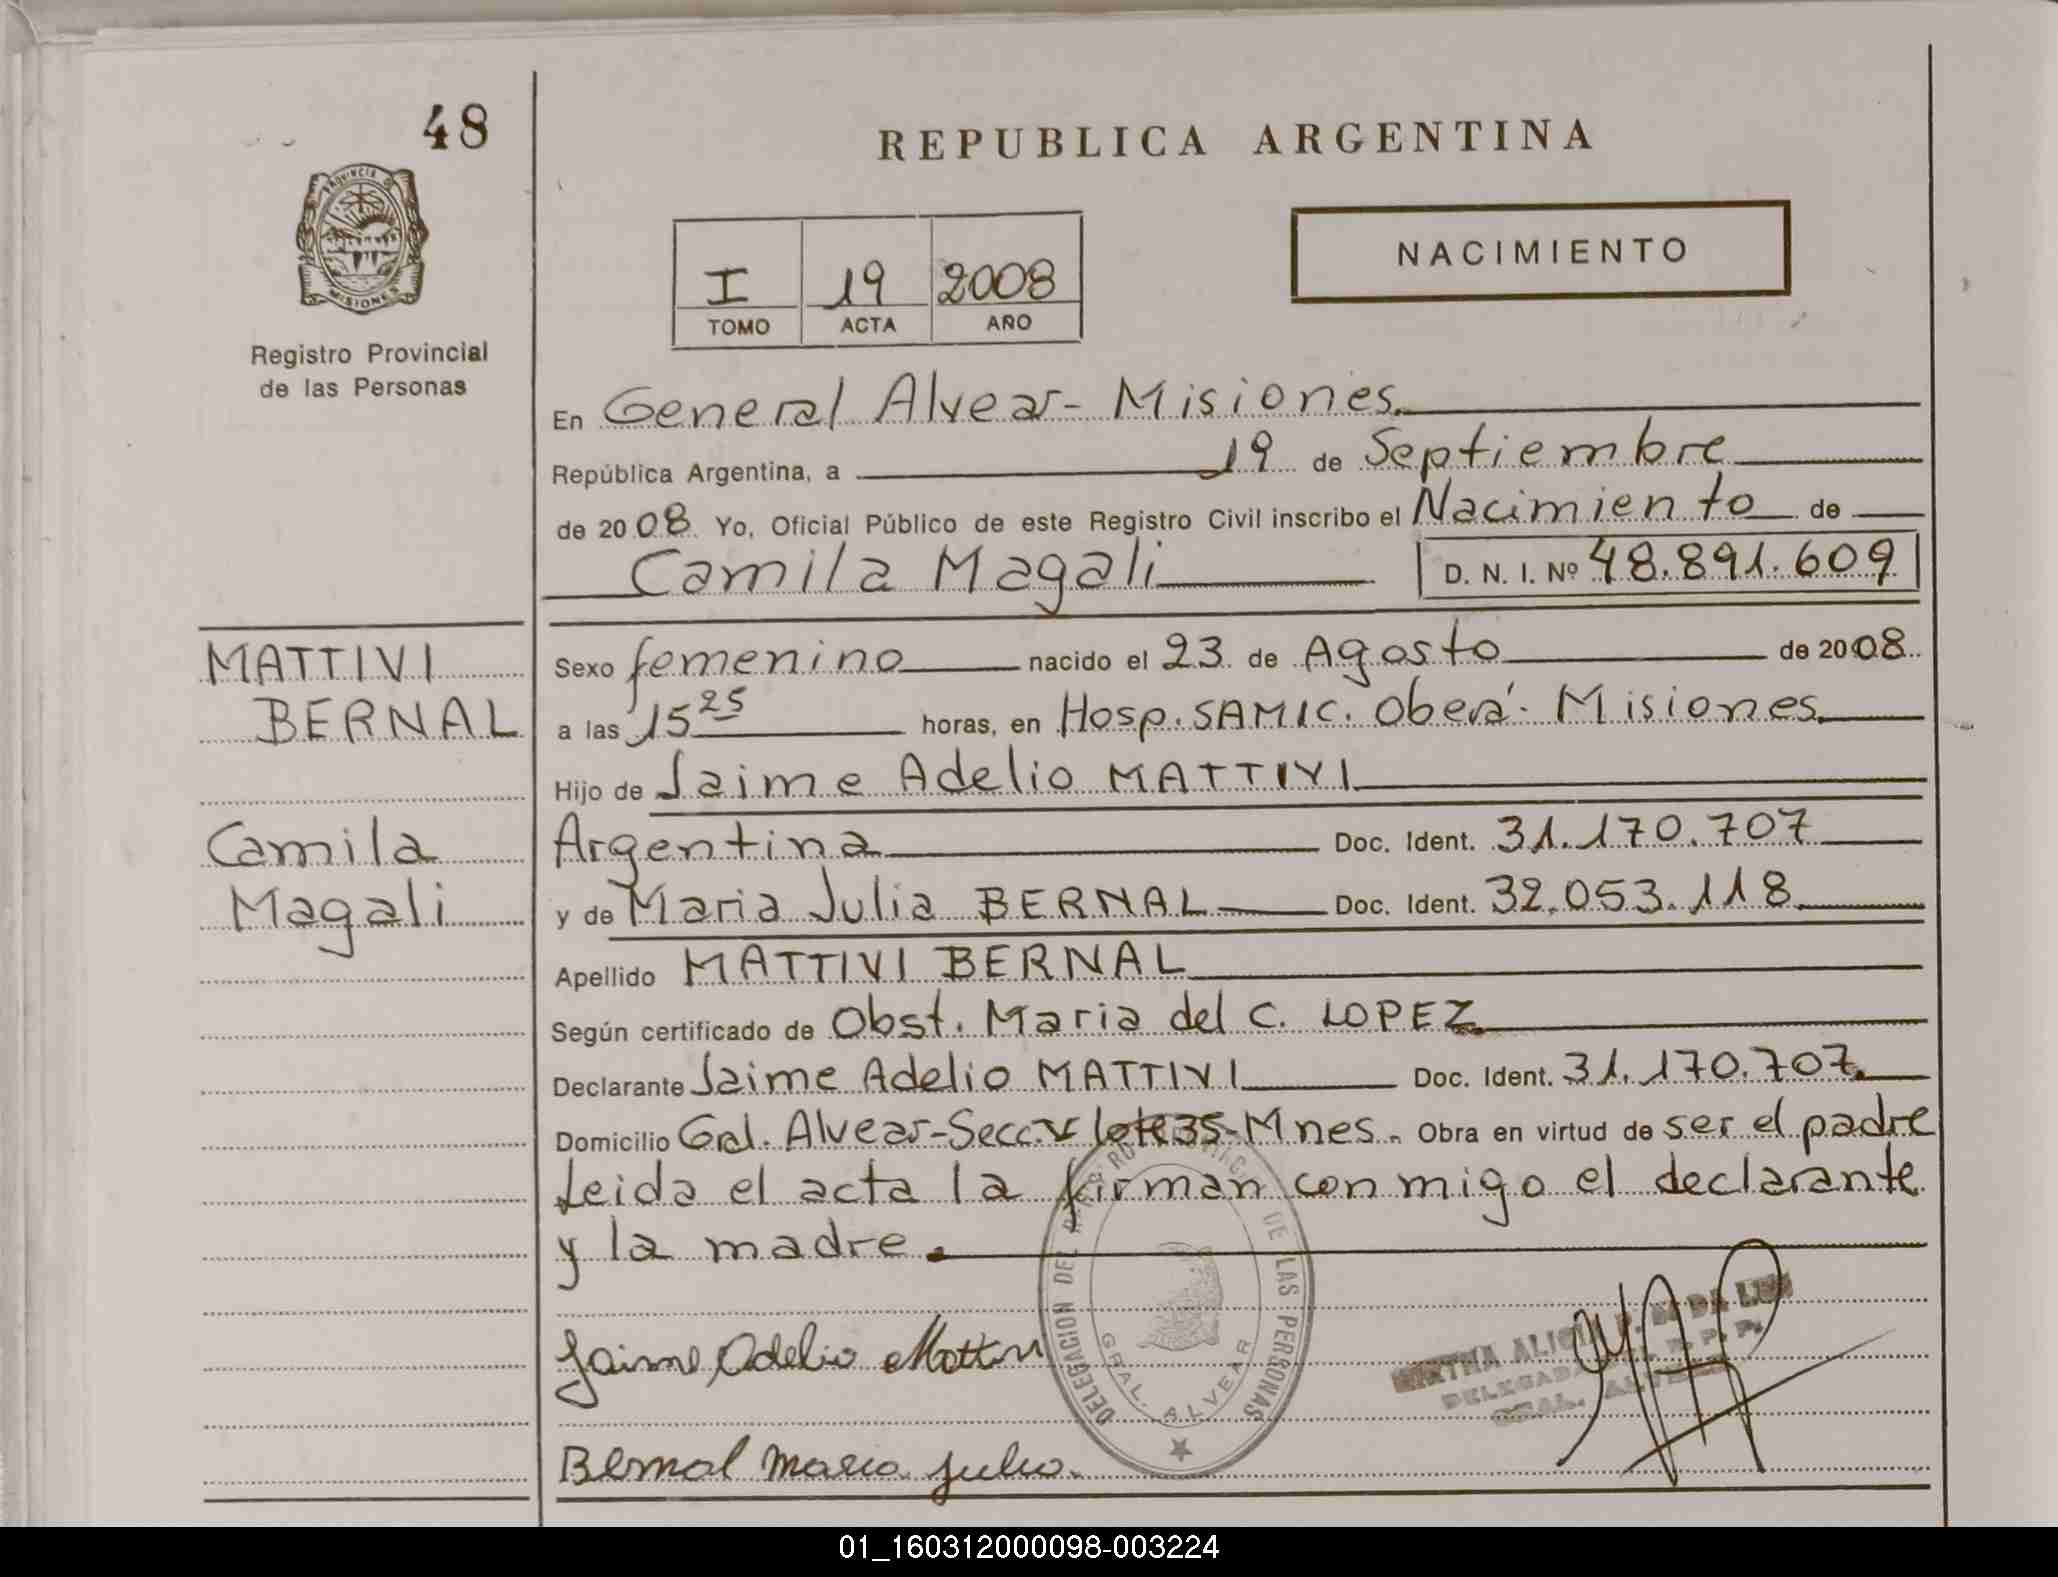 48
PROVINCIA DE
MISIONES
Registro Provincial
de las Personas
REPUBLICA ARGENTINA
NACIMIENTO
I 19 2008
TOMO ACTA AÑO
En General Alvear - Misiones.
República Argentina, a 19 de Septiembre
de 2008 Yo, Oficial Público de este Registro Civil inscribo el Nacimiento de
Camila Magali D. N. I. Nº 48.891.609
MATTIVI
BERNAL
Camila
Magali
Sexo femenino nacido el 23 de Agosto de 2008
a las 15 25 horas, en Hosp. SAMIC. Oberá - Misiones.
Hijo de Jaime Adelio MATTIVI
Argentina Doc. Ident. 31.170.707
y de Maria Julia BERNAL Doc. Ident. 32.053.118
Apellido MATTIVI BERNAL
Según certificado de Obst. Maria del C. LOPEZ
Declarante Jaime Adelio MATTIVI Doc. Ident. 31.170.707.
Domicilio Gral. Alvear-Secc. V lote 35-Mnes. Obra en virtud de ser el padre
Leida el acta la firman conmigo el declarante
y la madre.
DELEGACION DEL REGISTRO PROVINCIAL DE LAS PERSONAS
GRAL. ALVEAR
Jaime Adelio Mattivi
MIRTHA ALICIA
DELEGADA R. P. P.
GRAL. ALVEAR
Bernal Maria Julia.
01_160312000098-003224